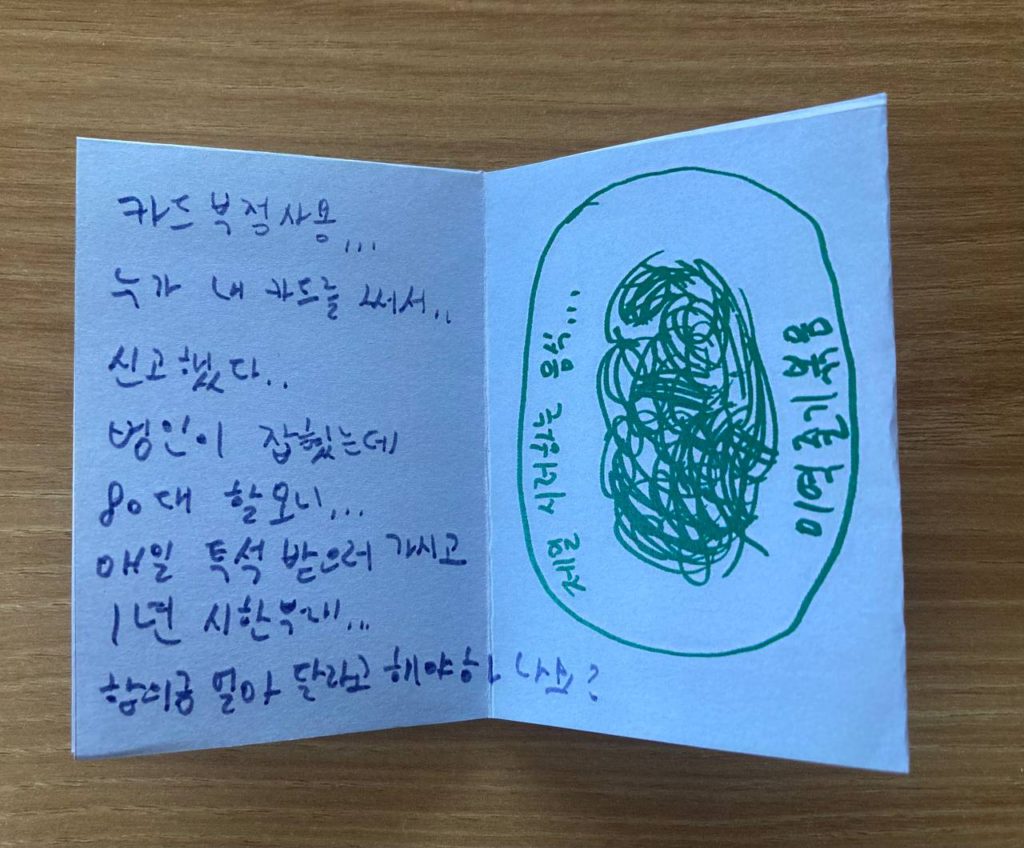 카드 부정사용...
누가 내 카드를 써서..
신고했다..
범인이 잡혔는데
80대 할모니...
매일 투석 받으러 가시고
1년 시한부래...
합의금 얼마 달라고 해야하나싶?
미역줄기볶음
제일 시러하는 음식...